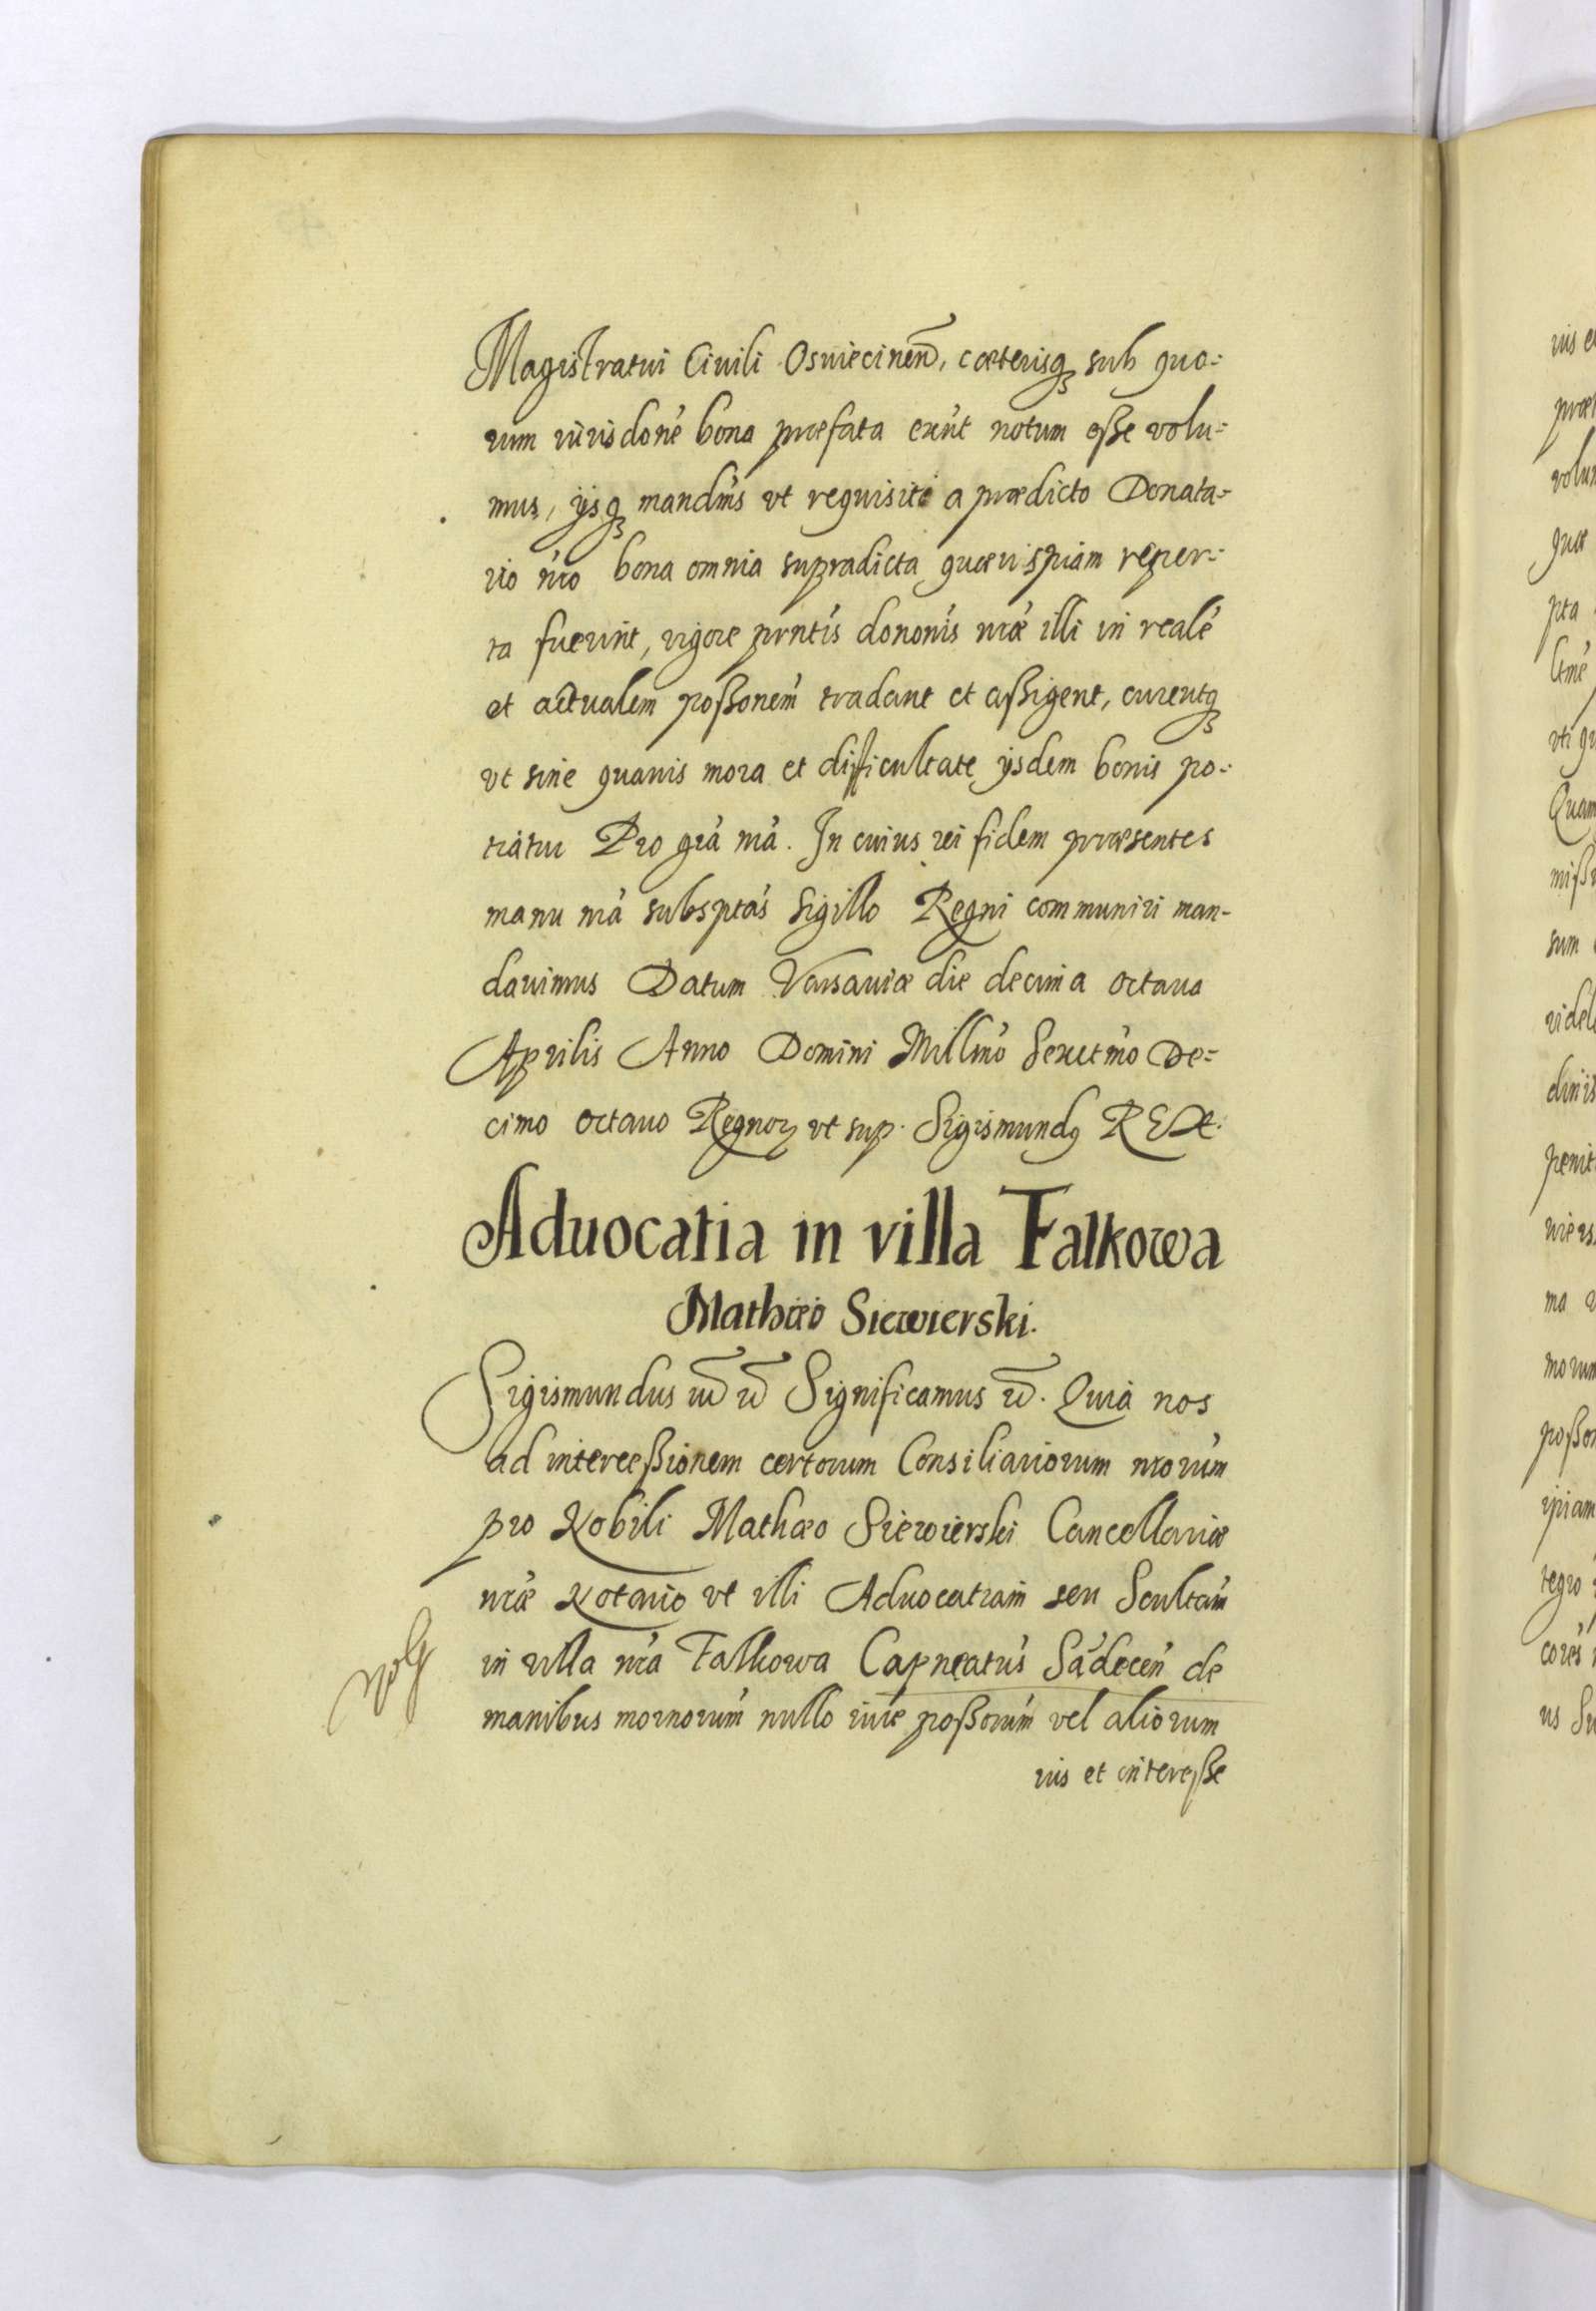 Magistratui Ciuili Osuiecineñ, cæterisq sub quo:
rum iurisdoné bona præfata erút notum eße volu:
mus, ijsq mandms vt requisiti a prædicto Donata:
rio nro bona omnia supradicta quæuispiam reper:
ta fuerint, vigore prntis dononis nræ illi in realé
et actualem poßonem tradant et aßigent, curentq
vt sine quauis mora et difficultate ijsdem bonis po:
tiatur Pro grã nrã. In cuius rei fidem præsentes
manu nrã subsptas Sigillo Regni communiri man-
dauimus Datum Varsauiæ die decima octaua
Aprilis Anno Domini Millmo Sexctmo De:
cimo octauo Regnor vt sup. Sigismundq REX.
Aduocatia in villa Falkowa
Mathæo Siewierski.
Sigismundus Significamus. Quia nos
ad interceßionem certorum Consiliariorum nrorum
pro Nobili Mathæo Siewierski Cancellariæ
nræ Notario vt illi Aduocatiam seu Scultam
in villa nra Falkowa Capneatus Sãdecen de
manibus mornorum nullo iure poßorum vel aliorum
ius et intereße